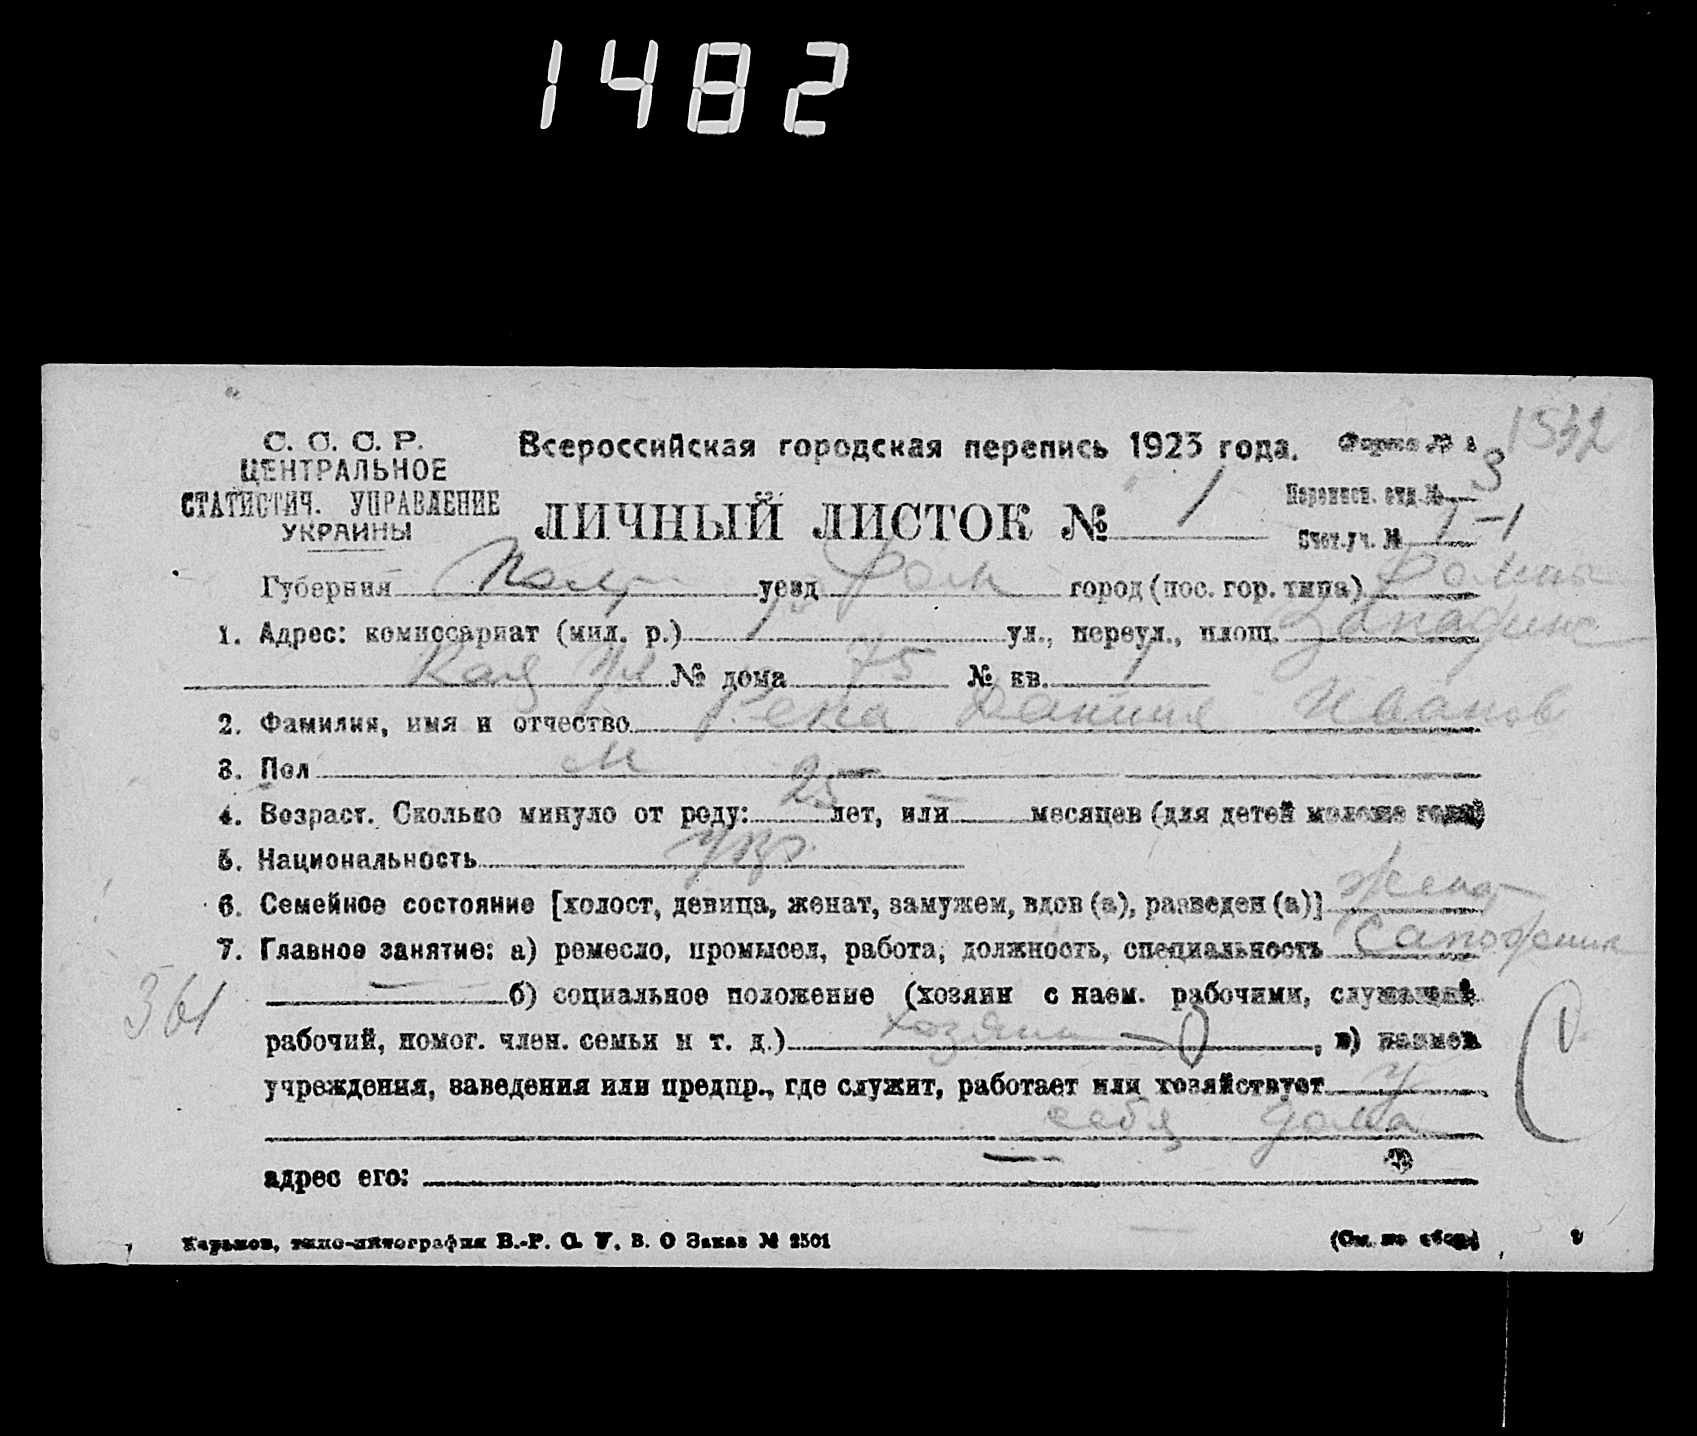 1482
1532
С. С. С. Р.
ЦЕНТРАЛЬНОЕ
СТАТИСТИЧ. УПРАВЛЕНИЕ
УКРАИНЫ
Всероссийская городская перепись 1923 года. Форма № 1
ЛИЧНЫЙ ЛИСТОК № 1
Переписн. отд. № 3
Счет. уч. № 1-1
Губерния Полт уезд Ром город (пос. гор. типа) Ромны
1. Адрес: комиссариат (мил. р.) 1 ул., переул., площ.
кая ул № дома 75 № кв. 1
2. Фамилия, имя и отчество Репа Даниил Иванов
3. Пол м
4. Возраст. Сколько минуло от роду: 25 лет, или — месяцев (для детей моложе года)
5. Национальность укр.
6. Семейное состояние [холост, девица, женат, замужем, вдов (а), разведен (а)] женат
7. Главное занятие: а) ремесло, промысел, работа, должность, специальность Сапожник
361
— б) социальное положение (хозяин с наем. рабочими, служащий
рабочий, помог. член. семьи и т. д.) хозяин — 0, в) наимен
учреждения, заведения или предпр., где служит, работает или хозяйствует у
себя дома
адрес его:
Харьков, типо-литография В.-Р. О. У. В. О Заказ № 2501 (См. на обор.)